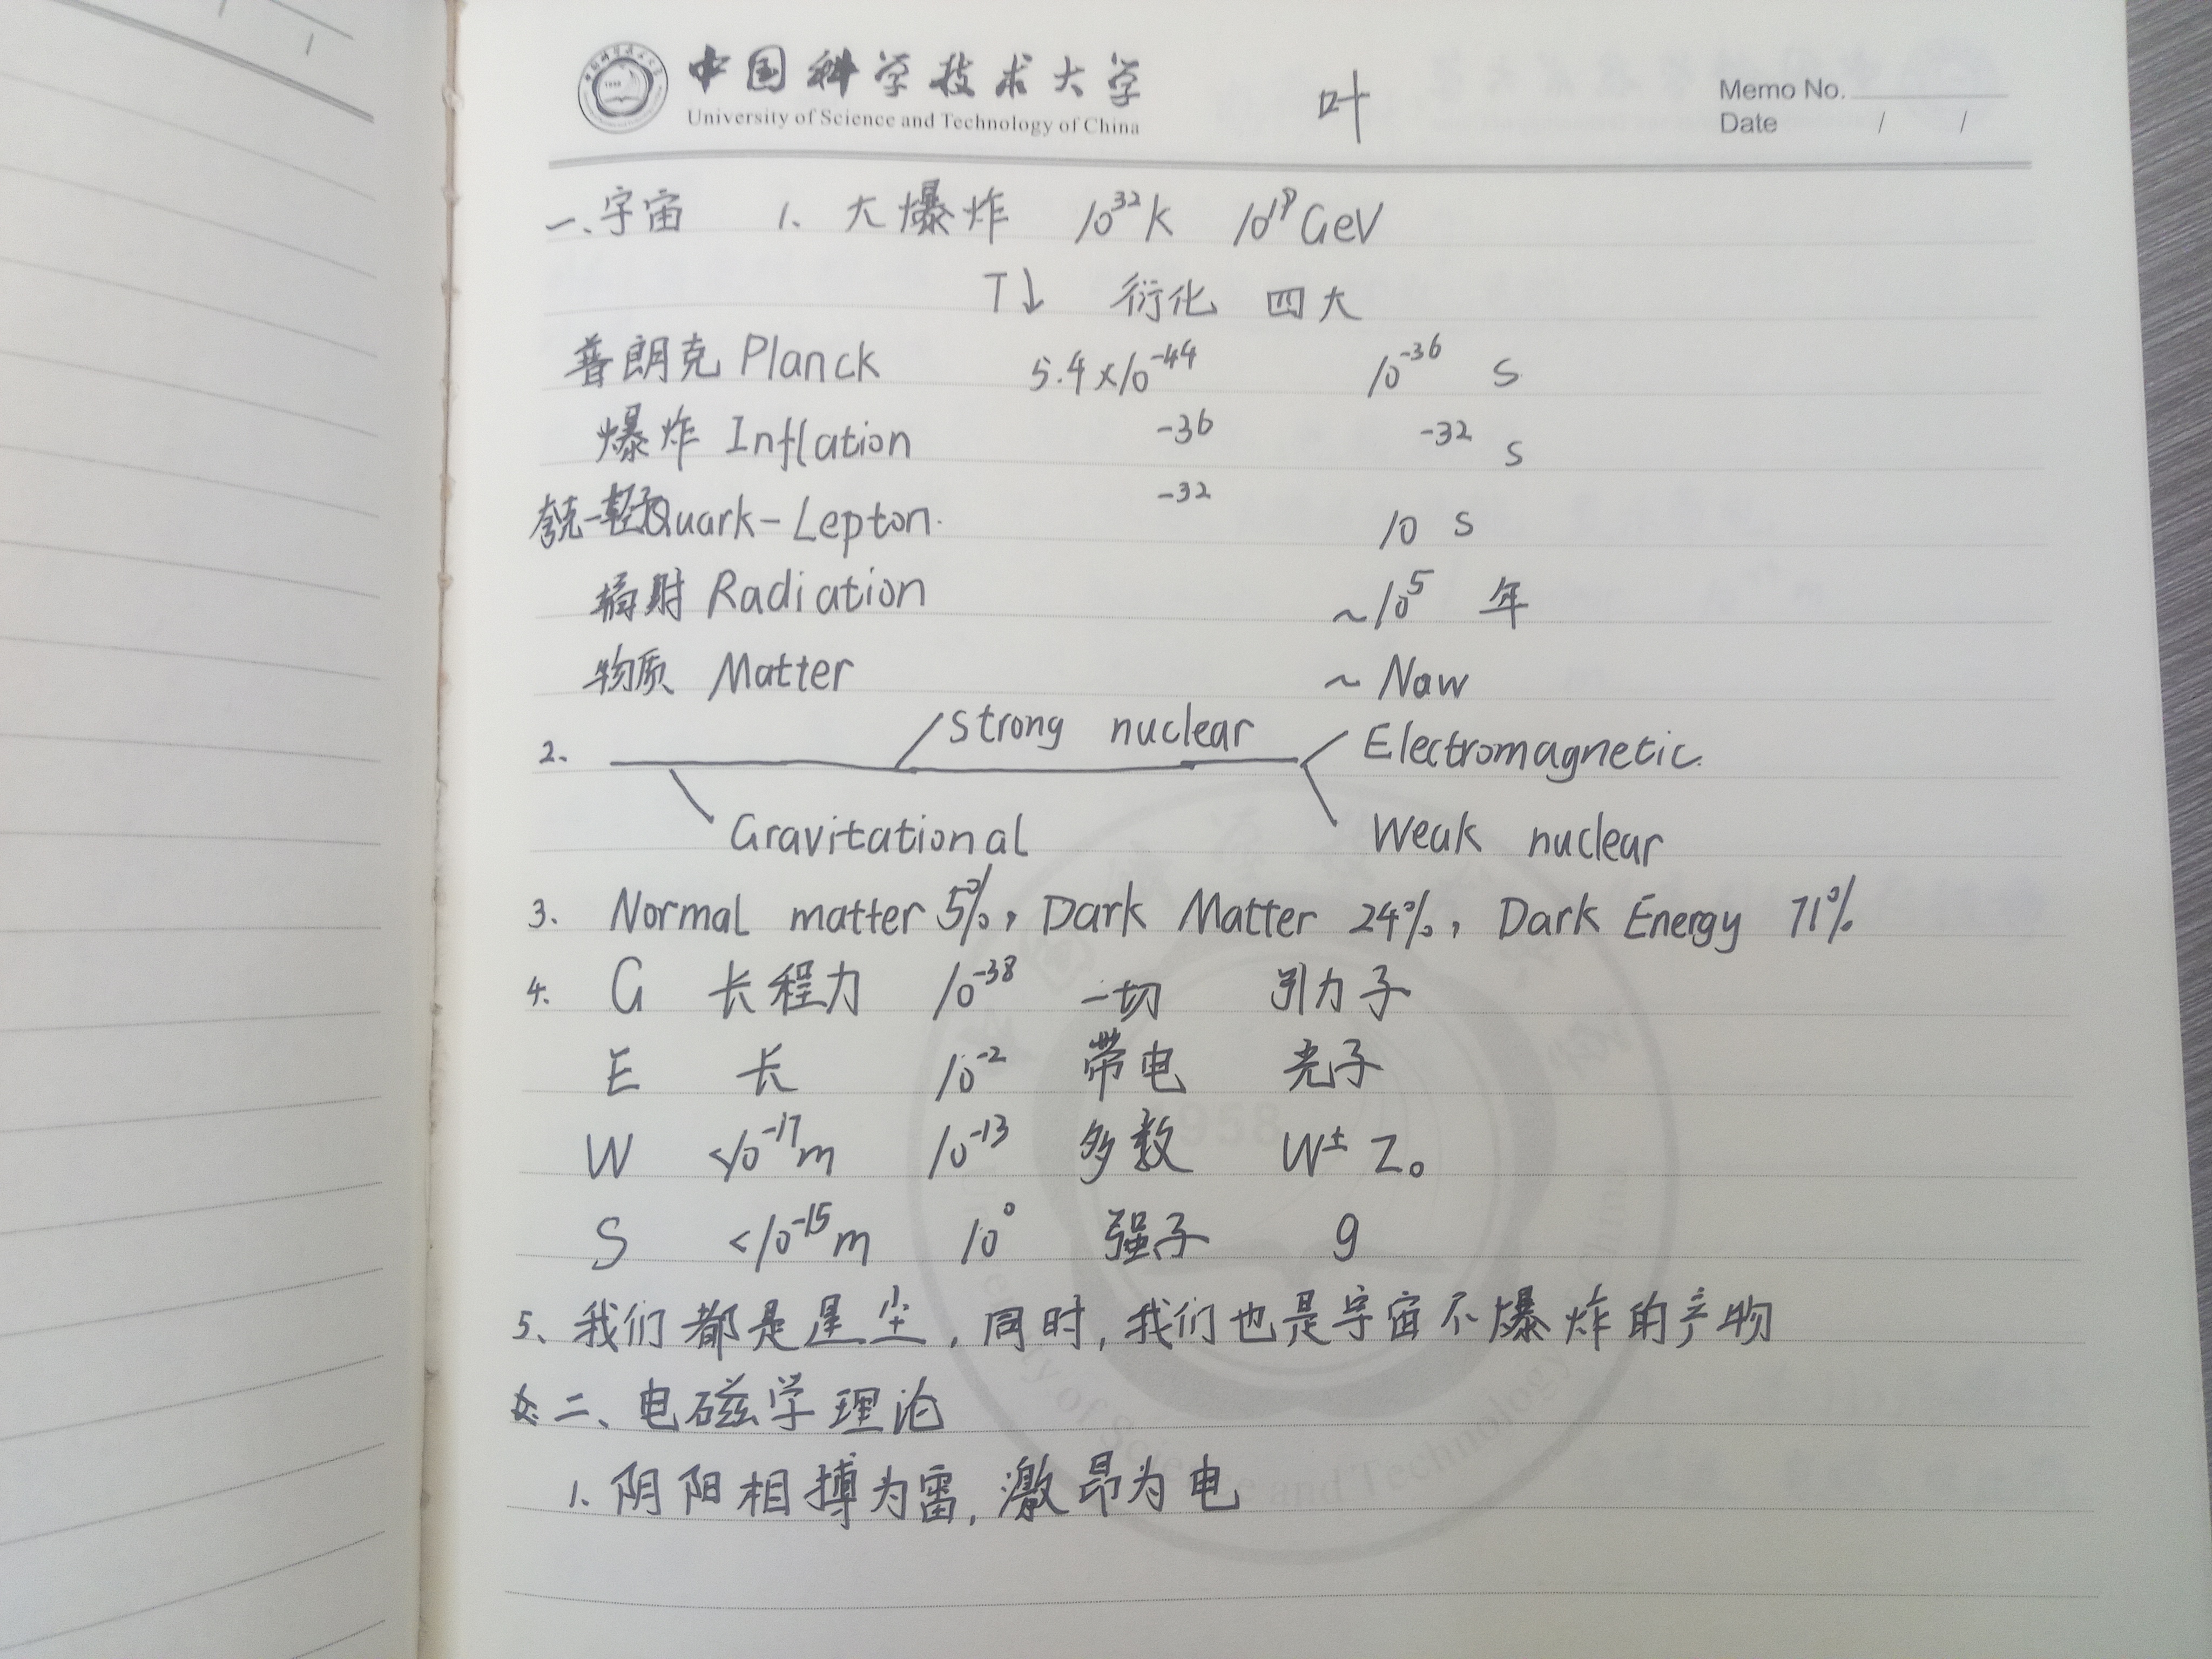 中国科学技术大学
University of Science and Technology of China
叶
Memo No.
Date / /
一、宇宙 1、大爆炸 10³²k 10¹⁹GeV
T↓ 衍化 四大
普朗克 Planck 5.4×10⁻⁴⁴ 10⁻³⁶ s
爆炸 Inflation -36 -32 s
夸克-轻子Quark-Lepton. -32 10 s
辐射 Radiation ~10⁵ 年
物质 Matter ~ Naw
2. Strong nuclear Electromagnetic.
Gravitational Weak nuclear
3. Normal matter 5%, Dark Matter 24%, Dark Energy 71%
4. G 长程力 10⁻³⁸ 一切 引力子
E 长 10⁻² 带电 光子
W <10⁻¹⁷m 10⁻¹³ 多数 W± Z₀
S <10⁻¹⁵m 10⁰ 强子 g
5、我们都是星尘,同时,我们也是宇宙不爆炸的产物
二、电磁学理论
1. 阴阳相搏为雷,激昂为电
1958
University of Science and Technology